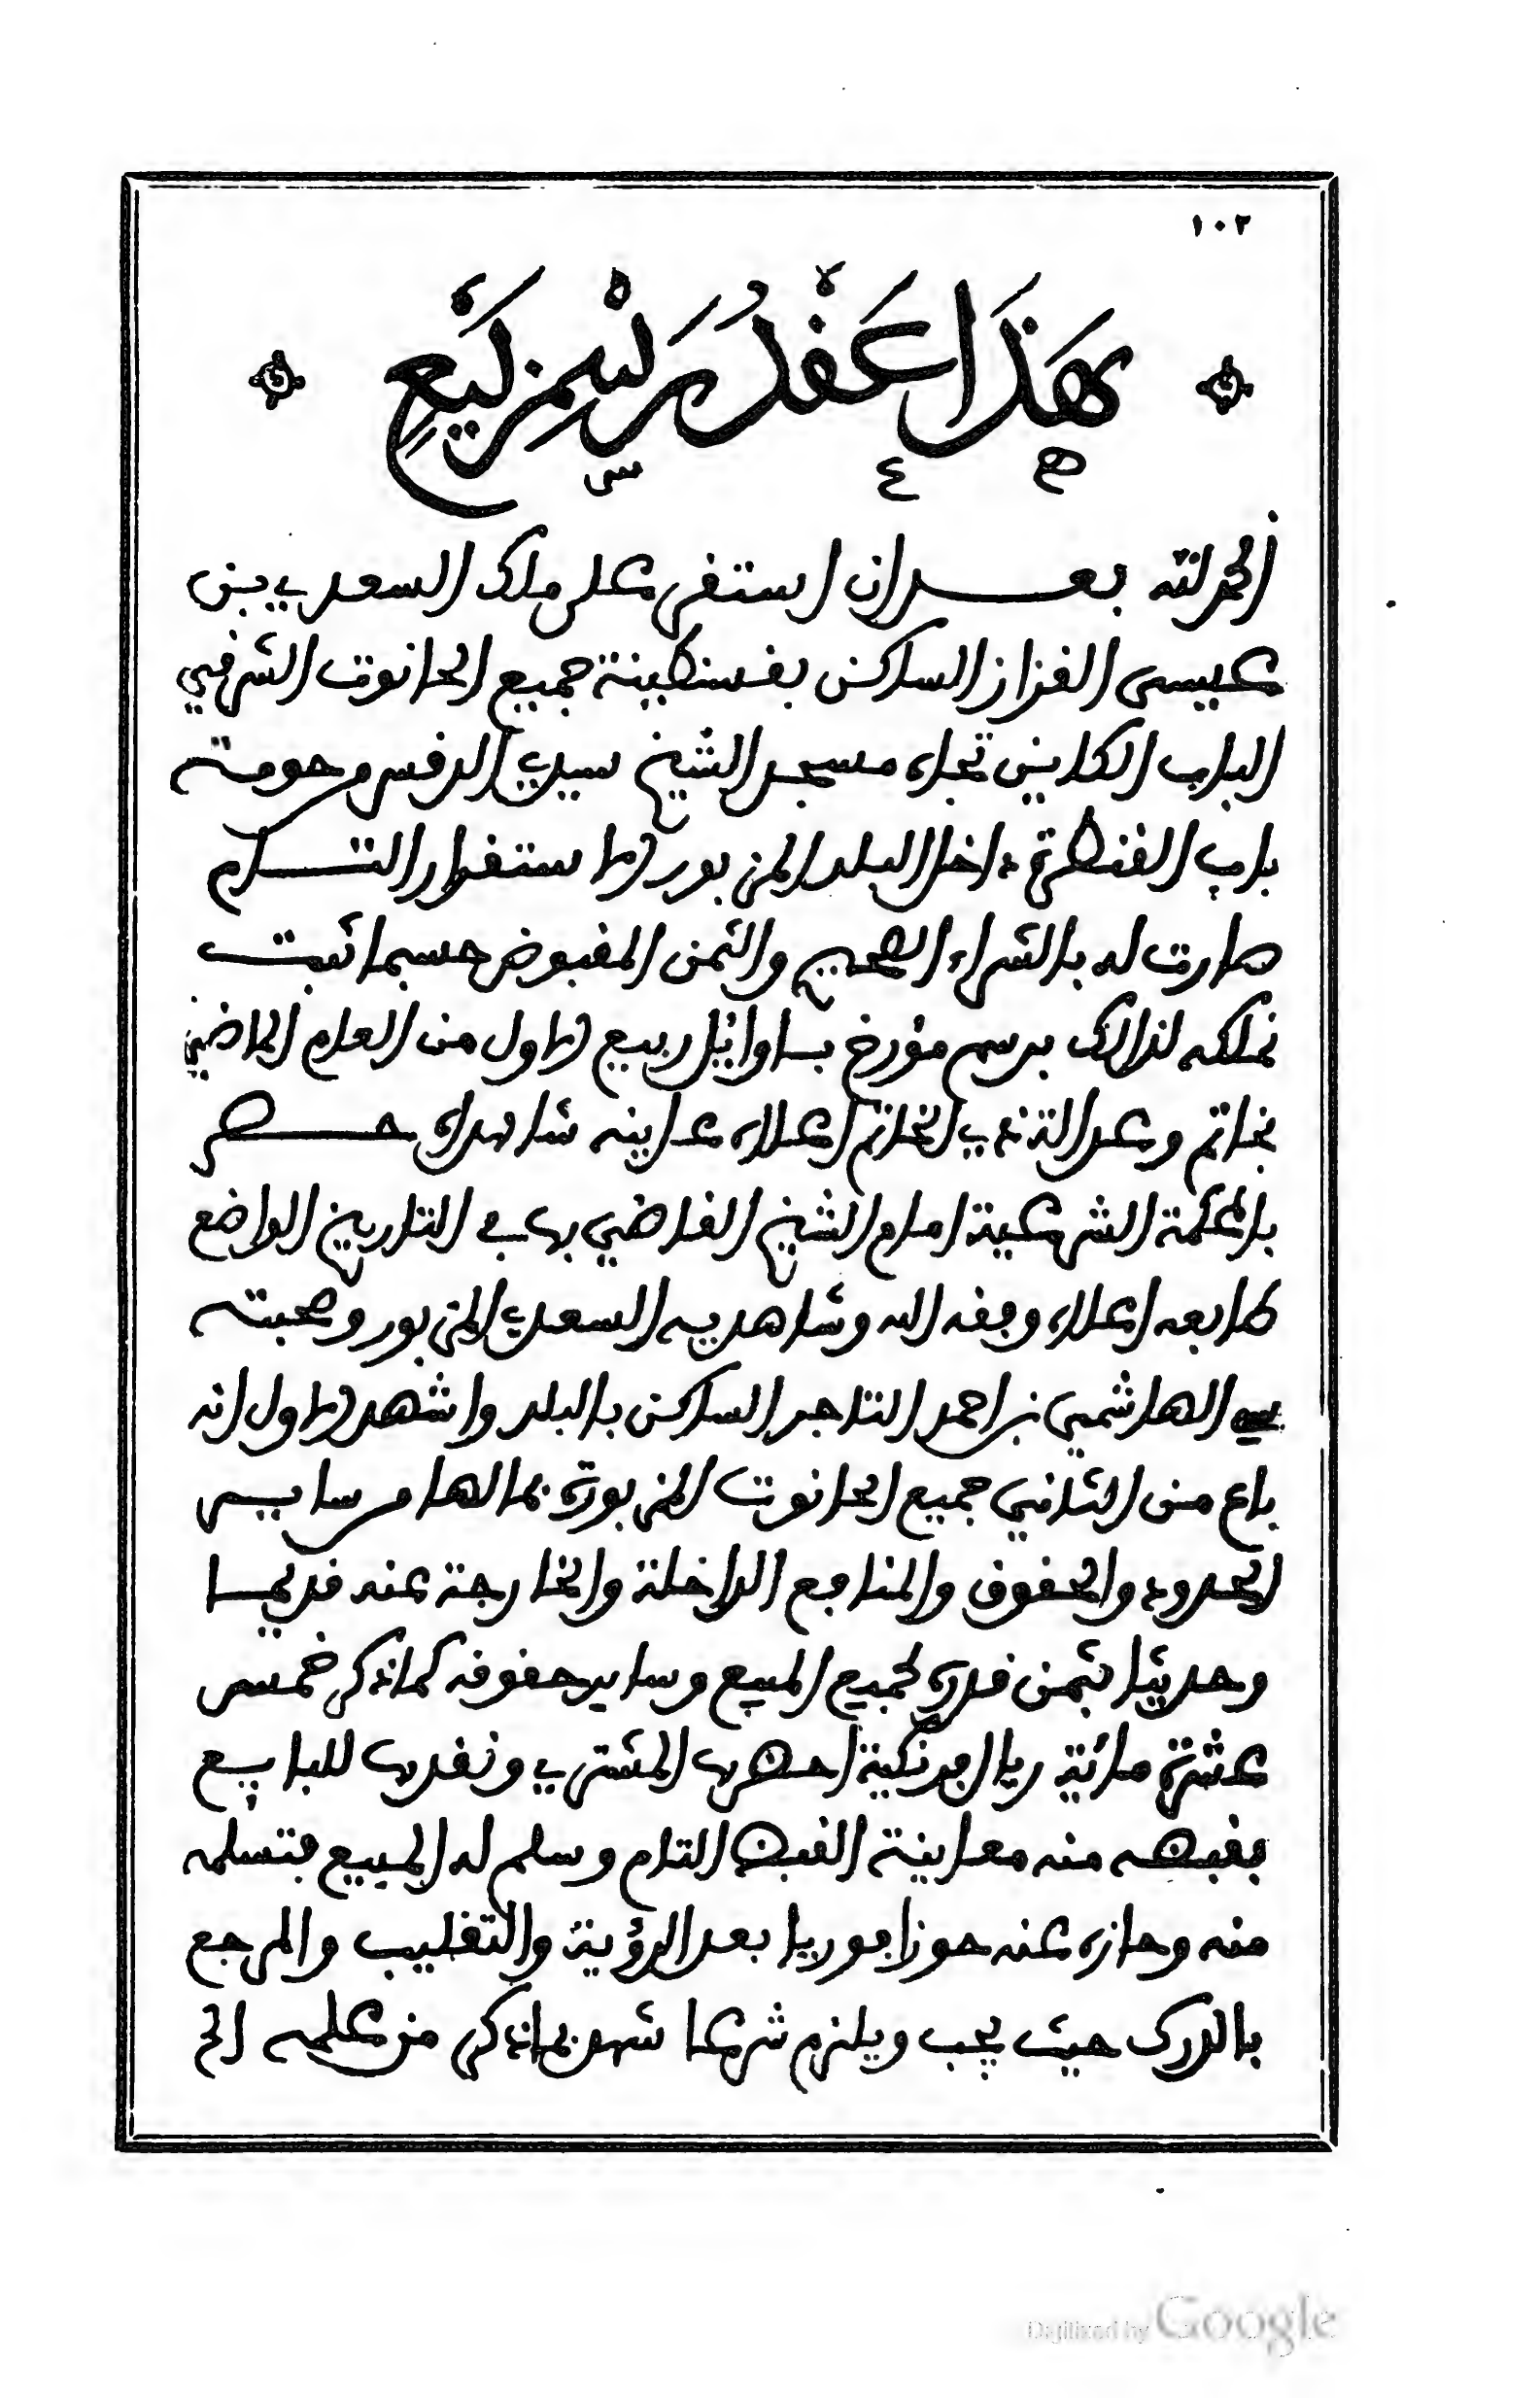 ١٠٢
هَذَا عَقْدُ رَسْمِ بَيْعٍ
الحمد لله بعد ان استقر على ملك السعدي بن
عيسى القزاز الساكن بقسنطينة جميع الحانوت الشرقي
الباب الكاين تجاه مسجد الشيخ سيدي الدرفس من حومة
باب القنطرة داخل البلد المزبور الاستقرار التام
صارت له بالشراء الصحيح والثمن المقبوض حسبما اثبت
تملكه لذالك برسم مؤرخ باوائل ربيع الاول من العام الماضي
بخاتم وعدالة ذي الخاتم اعلاه عاينه شاهداه حضر
بالمحكمة الشرعية امام الشيخ القاضي بها في التاريخ الواضع
طابعه اعلاه وفقه الله وشاهديه السعدي المزبور وصحبته
سي الهاشمي بن احمد التاجر الساكن بالبلد واشهد الاول انه
باع من الثاني جميع الحانوت المزبورة بما لها من ساير
الحدود والحقوق والمنافع الداخلة والخارجة عنه قديما
وحديثا بثمن قدره لجميع المبيع وساير حقوقه كما ذكر خمس
عشرة مائة ريال فرنكية احضرها المشتري ونقدها للبايع
فقبضه منه معاينة القبض التام وسلم له المبيع فتسلمه
منه وحازه عنه حوزا فوريا بعد الرؤية والتقليب والمرجع
بالدرك حيث يجب ويلزم شرعا شهد بما ذكر من علمه الخ
Digitized by Google